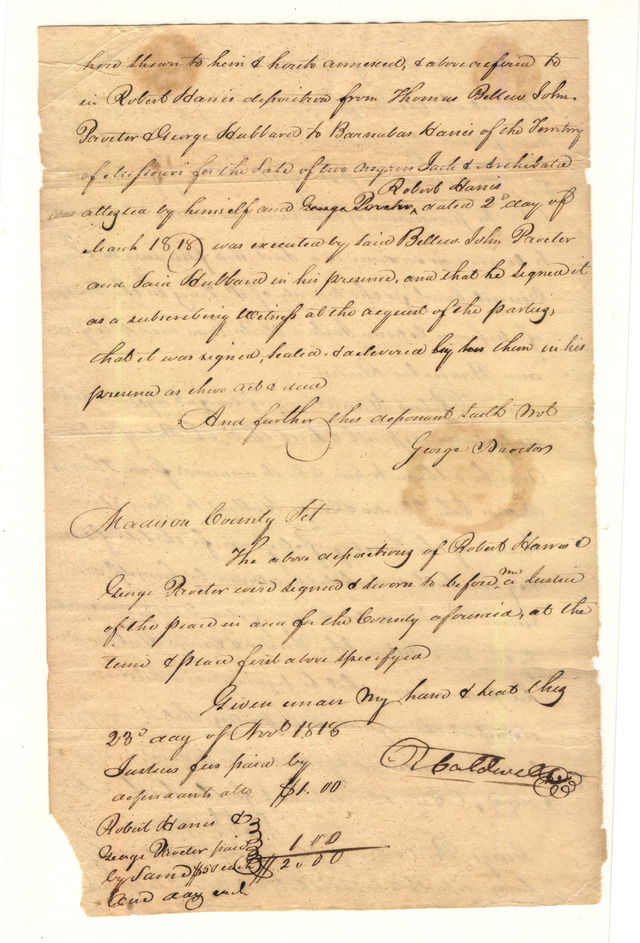 here shewn to him & hereto annexed, & above refered to
in Robert Harris deposition from Thomas Bellew John
Procter & George Hubbard to Barnabas Harris of the Territory
of Missouri for the Sale of two negroes Jack & Archibald
Robert Harris
attested by himself and George Procter, dated 2d day of
March 1818 was executed by said Bellew John Procter
and Said Hubbard in his presence, and that he signed it
as a subscribing witness at the request of the parties,
that it was signed, sealed & delivered by them in his
presence as there act & deed
And further this deponant saith not
George Procter
Madison County Sct
The above depositions of Robert Harris &
George Procter were signed & sworn to before me a Justice
of the peace in and for the County aforesaid, at the
time & place first above specifyed
Given under my hand & seal this
23d day of Novr 1818
Caldwell
Justices fees paid by
defendants atto $1.00
Robert Harris &
George Procter paid 1 00
by Same $50 each $2.00
one day each